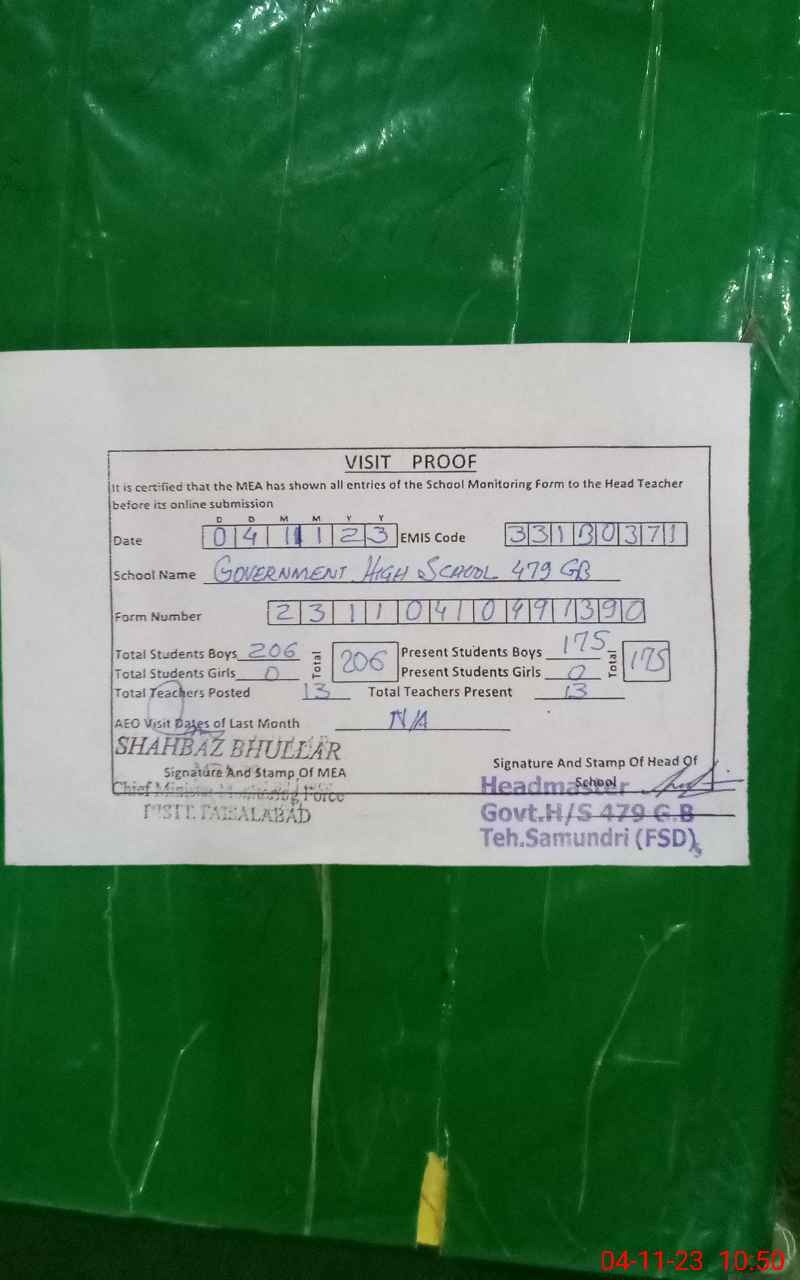 VISIT PROOF
It is certified that the MEA has shown all entries of the School Monitoring Form to the Head Teacher
before its online submission
D D M M Y Y
Date 04 11 23 EMIS Code 33130371
School Name GOVERNMENT HIGH SCHOOL 479 GB
Form Number 23110410491390
Total Students Boys 206 Total 206 Present Students Boys 175 Total 175
Total Students Girls 0 Present Students Girls 0
Total Teachers Posted 13 Total Teachers Present 13
AEO Visit Dates of Last Month N/A
SHAHBAZ BHULLAR
Signature And Stamp Of MEA
Chief Minister Monitoring Force
DISTT. FAISALABAD
Signature And Stamp Of Head Of
School
Headmaster
Govt.H/S 479 G.B
Teh.Samundri (FSD)
04-11-23 10:50